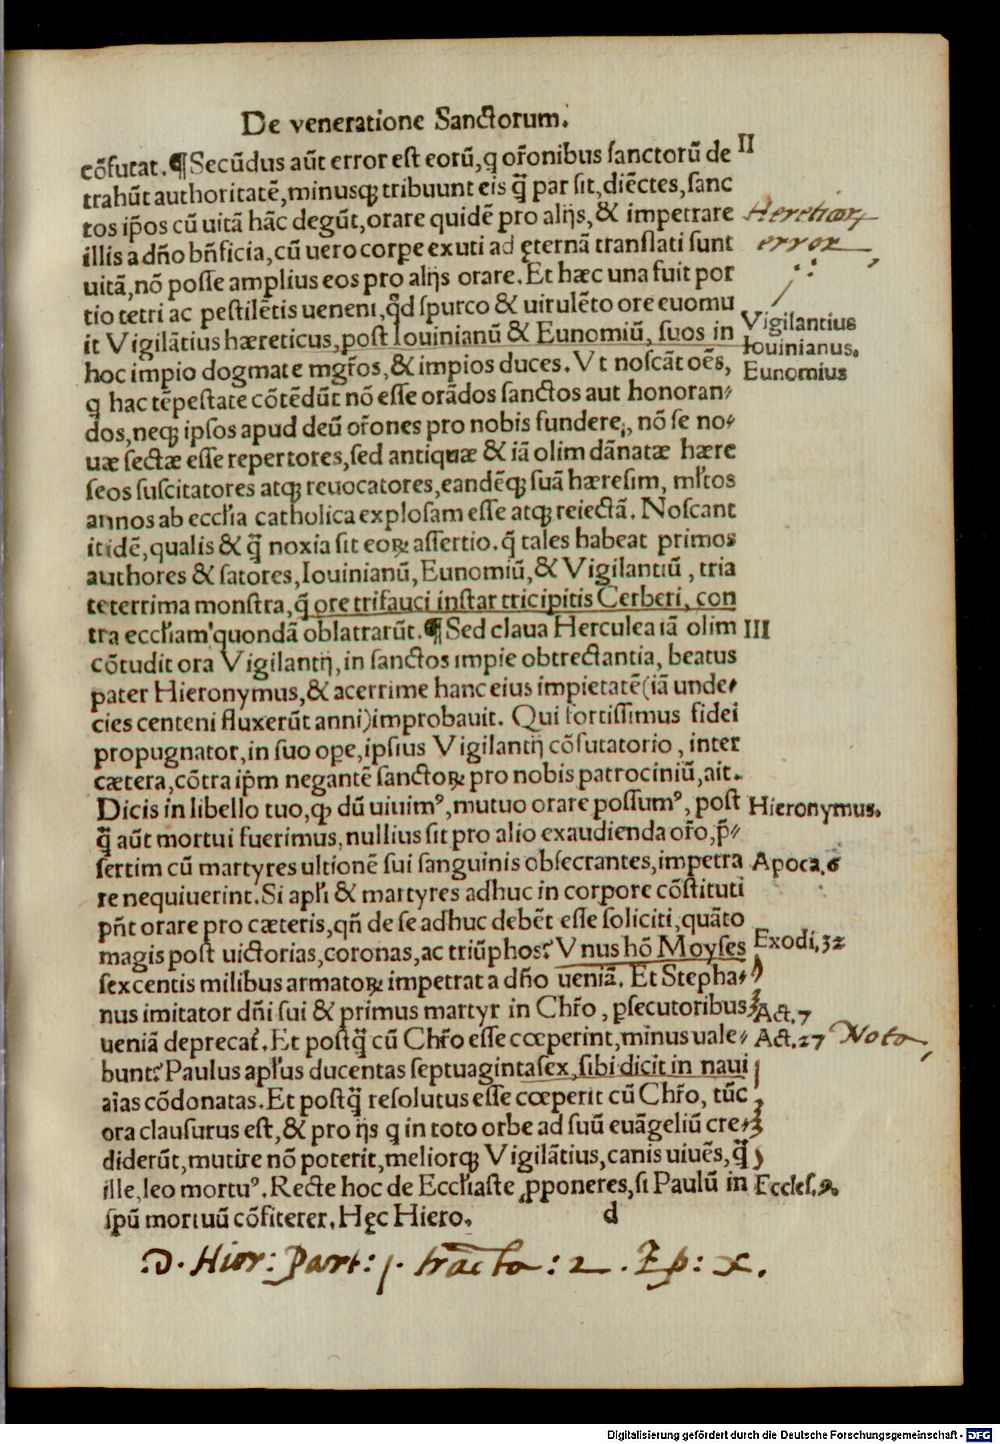 De veneratione Sanctorum.
cõfutat.¶Secũdus aũt error est eorũ,q or̃onibus sanctorũ de II
trahũt authoritatẽ,minusqꝫ tribuunt eis q̃ par sit,diẽctes,sanc
tos ip̃os cũ uitã hãc degũt,orare quidẽ pro alijs,& impetrare
illis a dño bñficia,cũ uero corpe exuti ad ęternã translati sunt
uitã,nõ posse amplius eos pro alijs orare.Et hæc una fuit por
tio tetri ac pestilẽtis ueneni,q̃d spurco & uirulẽto ore euomu
it Vigilãtius hæreticus,post Iouinianũ & Eunomiũ, suos in
hoc impio dogmate mgr̃os,& impios duces. Vt noscãt oẽs,
q hac tẽpestate cõtẽdũt nõ esse orãdos sanctos aut honoran⸗
dos,neqꝫ ipsos apud deũ or̃ones pro nobis fundere, nõ se no⸗
uæ sectæ esse repertores,sed antiquæ & iã olim dãnatæ hære
seos suscitatores atqꝫ reuocatores,eandẽqꝫ suã hæresim, ml̃tos
annos ab eccl̃ia catholica explosam esse atqꝫ reiectã. Noscant
itidẽ,qualis & q̃ noxia sit eoꝝ assertio. q̃ tales habeat primos
authores & satores,Iouinianũ,Eunomiũ,& Vigilantiũ, tria
teterrima monstra,q̃ ore trifauci instar tricipitis Cerberi, con
tra eccl̃iam quondã oblatrarũt.¶Sed claua Herculea iã olim III
cõtudit ora Vigilantij,in sanctos impie obtrectantia, beatus
pater Hieronymus,& acerrime hanc eius impietatẽ(iã unde⸗
cies centeni fluxerũt anni)improbauit. Qui fortissimus fidei
propugnator,in suo ope,ipsius Vigilantij cõfutatorio, inter
cætera,cõtra ip̃m negantẽ sanctoꝝ pro nobis patrociniũ,ait.
Dicis in libello tuo,ꝙ dũ uiuimꝰ,mutuo orare possumꝰ, post
q̃ aũt mortui fuerimus,nullius sit pro alio exaudienda or̃o,p̃⸗
sertim cũ martyres ultionẽ sui sanguinis obsecrantes,impetra
re nequiuerint.Si apl̃i & martyres adhuc in corpore cõstituti
pñt orare pro cæteris,qñ de se adhuc debẽt esse soliciti,quãto
magis post uictorias,coronas,ac triũphos? Vnus hõ Moyses
sexcentis milibus armatoꝝ impetrat a dño ueniã. Et Stepha⸗
nus imitator dñi sui & primus martyr in Chr̃o, ꝑsecutoribus
ueniã deprecat̃. Et postq̃ cũ Chr̃o esse cœperint,minus uale⸗
bunt? Paulus apl̃us ducentas septuagintasex,sibi dicit in naui
aĩas cõdonatas.Et postq̃ resolutus esse cœperit cũ Chr̃o, tũc
ora clausurus est,& pro ijs q in toto orbe ad suũ euãgeliũ cre⸗
diderũt,mutire nõ poterit,meliorqꝫ Vigilãtius,canis uiuẽs,q̃
ille,leo mortuꝰ. Recte hoc de Eccl̃iaste ꝓponeres,si Paulũ in
spũ mortuũ cõfiterer. Hęc Hiero.
d
Hereticoꝝ
error
Vigilantius
Iouinianus.
Eunomius
Hieronymus.
Apoca.6
Exodi,32
Act.7
Act.27 Nota,
Eccles.9.
.D. Hier: Part: 1. tracta: 2. Ep: x.
Digitalisierung gefördert durch die Deutsche Forschungsgemeinschaft - DFG